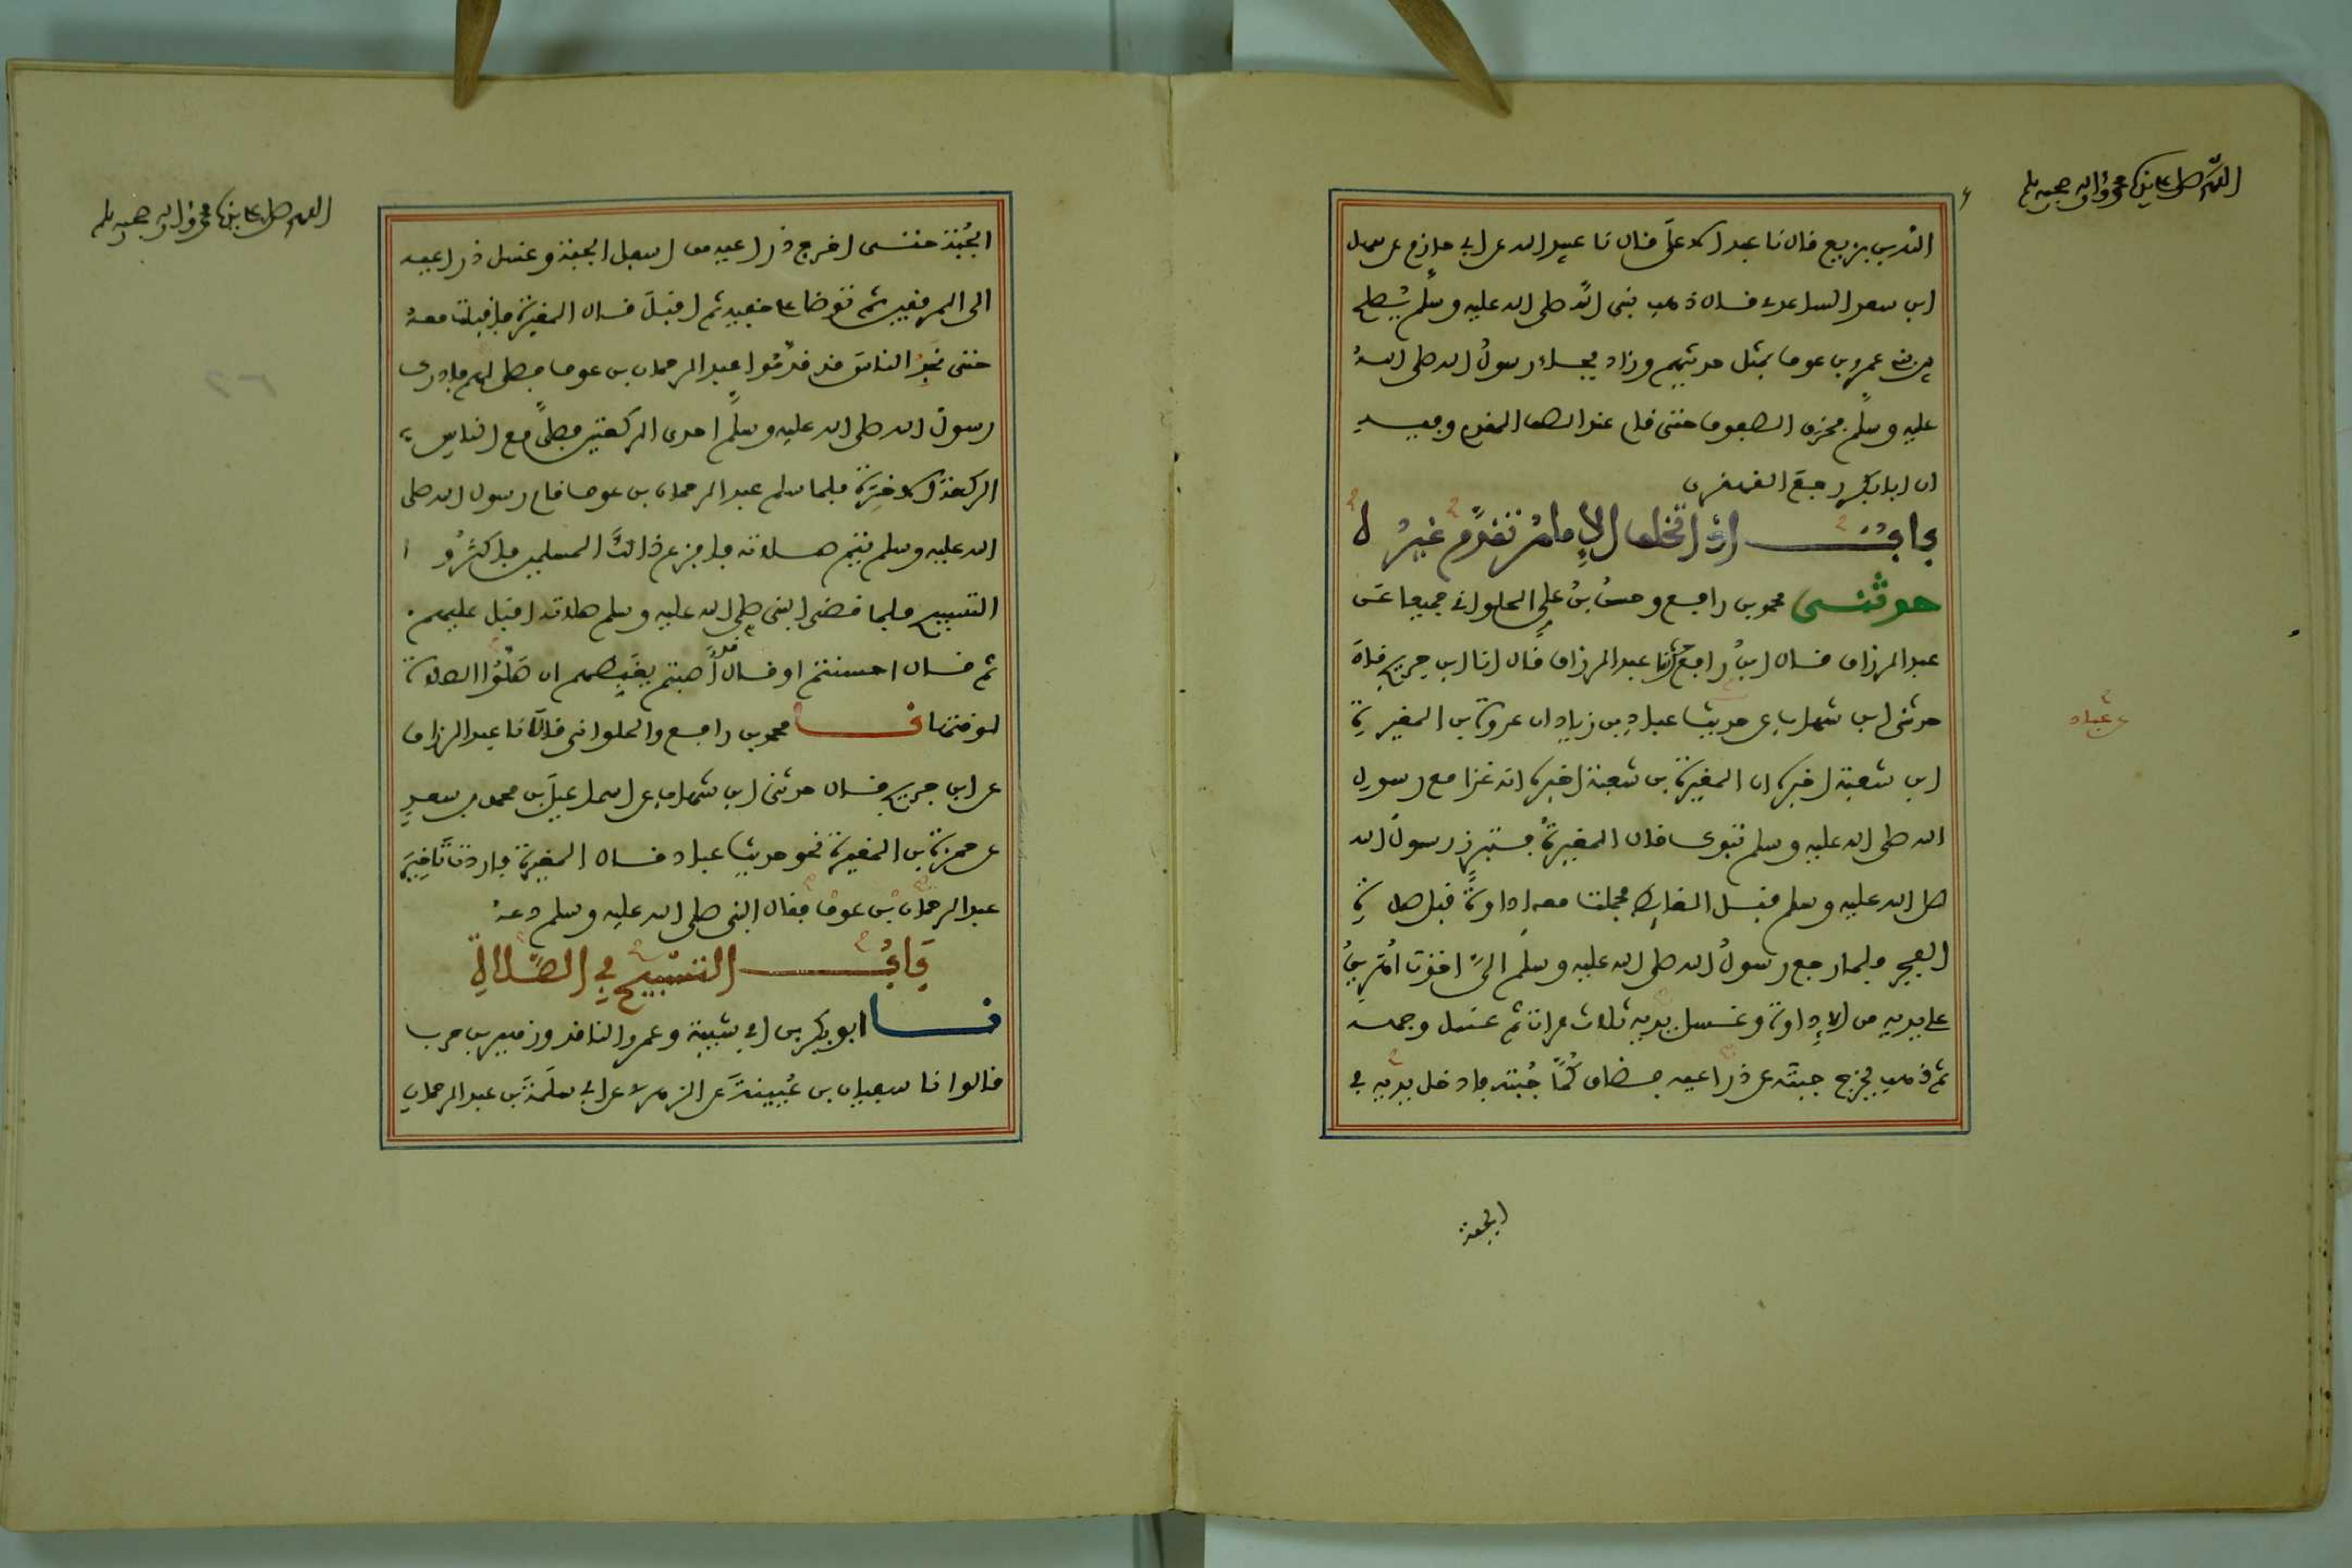 اللهم صل على سيدنا محمد وآله وصحبه وسلم
الله بن بزيع قال نا عبد الاعلى قال نا عبيد الله عن ابي حازم عن سهل
ابن سعد الساعدي قال ذهب نبي الله صلى الله عليه وسلم يصلح
بين بني عمرو بن عوف بمثل حديثهم وزاد فجاء رسول الله صلى الله
عليه وسلم فخرق الصفوف حتى قام عند الصف المقدم وفيه
ان ابا بكر رجع القهقرى
باب اذا تخلف الإمام تقدم غيره
حدثني محمد بن رافع وحسن بن علي الحلواني جميعا عن
عبد الرزاق قال ابن رافع نا عبد الرزاق قال انا ابن جريج قال
حدثني ابن شهاب عن حديث عباد بن زياد ان عروة بن المغيرة
عن عباد
ابن شعبة اخبره ان المغيرة بن شعبة اخبره انه غزا مع رسول
الله صلى الله عليه وسلم تبوك قال المغيرة فتبرز رسول الله
صلى الله عليه وسلم قبل الغائط فحملت معه إداوة قبل صلاة
الفجر فلما رجع رسول الله صلى الله عليه وسلم الي اخذت أهريق
على يديه من الإداوة وغسل يديه ثلاث مرات ثم غسل وجهه
ثم ذهب يخرج جبته عن ذراعيه فضاق كما جبته فادخل يديه في
الجبة
اللهم صل على سيدنا محمد وآله وصحبه وسلم
الجبة حتى اخرج ذراعيه من اسفل الجبة وغسل ذراعيه
الى المرفقين ثم توضا على خفيه ثم اقبل قال المغيرة فاقبلت معه
حتى نجد الناس قد قدموا عبد الرحمان بن عوف فصلى لهم فادرك
رسول الله صلى الله عليه وسلم احدى الركعتين فصلى مع الناس
الركعة الاخرة فلما سلم عبد الرحمان بن عوف قام رسول الله صلى
الله عليه وسلم يتم صلاته فافزع ذالك المسلمين فاكثروا
التسبيح فلما قضى النبي صلى الله عليه وسلم صلاته اقبل عليهم
ثم قال احسنتم او قال قد أصبتم يغبطهم ان صلوا الصلاة
لوقتها نا محمد بن رافع والحلواني قالا نا عبد الرزاق
عن ابن جريج قال حدثني ابن شهاب عن اسماعيل بن محمد بن سعد
عن حمزة بن المغيرة نحو حديث عباد قال المغيرة فاردت تاخير
عبد الرحمان بن عوف فقال النبي صلى الله عليه وسلم دعه
باب التسبيح في الصلاة
نا ابو بكر بن ابي شيبة وعمرو الناقد وزهير بن حرب
قالوا نا سفيان بن عيينة عن الزهري عن ابي سلمة بن عبد الرحمان